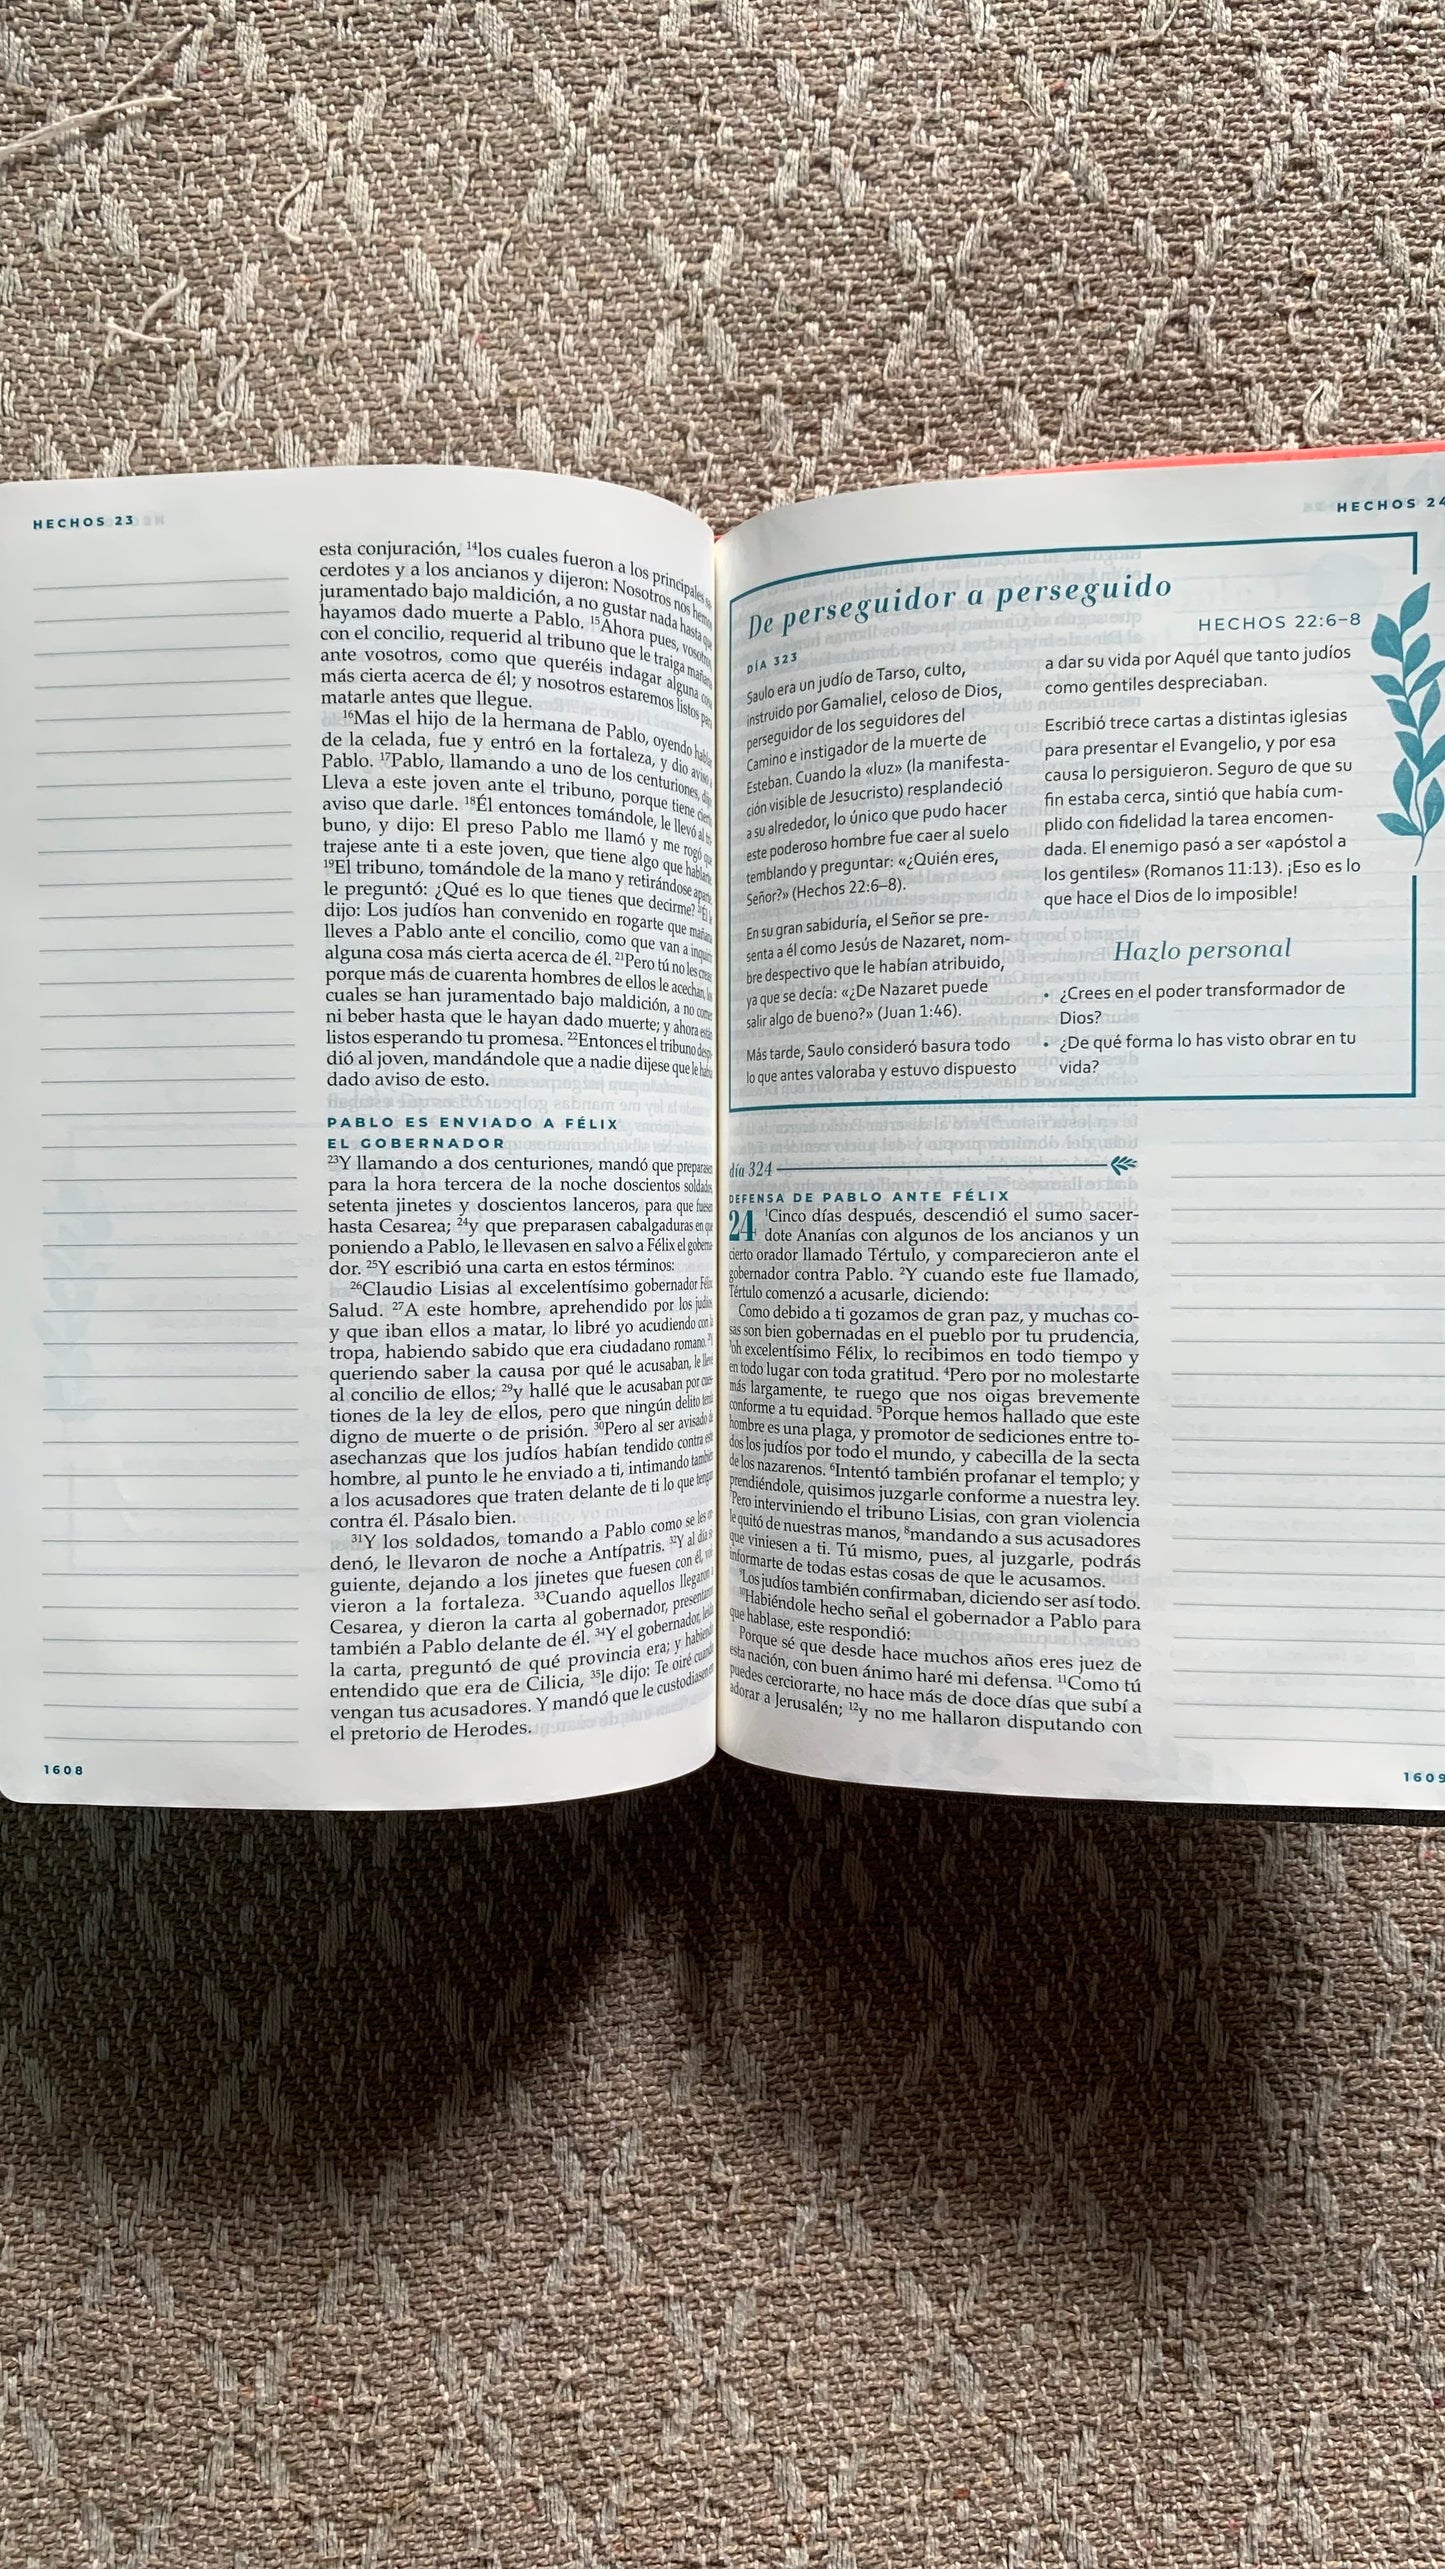 HECHOS 23
esta conjuración, 14los cuales fueron a los principales sa-
cerdotes y a los ancianos y dijeron: Nosotros nos hemos
juramentado bajo maldición, a no gustar nada hasta que
hayamos dado muerte a Pablo. 15Ahora pues, vosotros,
con el concilio, requerid al tribuno que le traiga mañana
ante vosotros, como que queréis indagar alguna cosa
más cierta acerca de él; y nosotros estaremos listos para
matarle antes que llegue.
16Mas el hijo de la hermana de Pablo, oyendo hablar
de la celada, fue y entró en la fortaleza, y dio aviso a
Pablo. 17Pablo, llamando a uno de los centuriones,
Lleva a este joven ante el tribuno, porque tiene cierto
aviso que darle. 18Él entonces tomándole, le llevó al tri-
buno, y dijo: El preso Pablo me llamó y me rogó que
trajese ante ti a este joven, que tiene algo que hablarte.
19El tribuno, tomándole de la mano y retirándose aparte,
le preguntó: ¿Qué es lo que tienes que decirme? 20Él le
dijo: Los judíos han convenido en rogarte que mañana
lleves a Pablo ante el concilio, como que van a inquirir
alguna cosa más cierta acerca de él. 21Pero tú no les creas;
porque más de cuarenta hombres de ellos le acechan, los
cuales se han juramentado bajo maldición, a no comer
ni beber hasta que le hayan dado muerte; y ahora están
listos esperando tu promesa. 22Entonces el tribuno despi-
dió al joven, mandándole que a nadie dijese que le había
dado aviso de esto.
PABLO ES ENVIADO A FÉLIX
EL GOBERNADOR
23Y llamando a dos centuriones, mandó que preparasen
para la hora tercera de la noche doscientos soldados,
setenta jinetes y doscientos lanceros, para que fuesen
hasta Cesarea; 24y que preparasen cabalgaduras en que
poniendo a Pablo, le llevasen en salvo a Félix el goberna-
dor. 25Y escribió una carta en estos términos:
26Claudio Lisias al excelentísimo gobernador Félix:
Salud. 27A este hombre, aprehendido por los judíos,
y que iban ellos a matar, lo libré yo acudiendo con la
tropa, habiendo sabido que era ciudadano romano. 28Y
queriendo saber la causa por qué le acusaban, le llevé
al concilio de ellos; 29y hallé que le acusaban por cues-
tiones de la ley de ellos, pero que ningún delito tenía
digno de muerte o de prisión. 30Pero al ser avisado de
asechanzas que los judíos habían tendido contra este
hombre, al punto le he enviado a ti, intimando también
a los acusadores que traten delante de ti lo que tengan
contra él. Pásalo bien.
31Y los soldados, tomando a Pablo como se les or-
denó, le llevaron de noche a Antípatris. 32Y al día si-
guiente, dejando a los jinetes que fuesen con él, vol-
vieron a la fortaleza. 33Cuando aquellos llegaron a
Cesarea, y dieron la carta al gobernador, presentaron
también a Pablo delante de él. 34Y el gobernador, leída
la carta, preguntó de qué provincia era; y habiendo
entendido que era de Cilicia, 35le dijo: Te oiré cuando
vengan tus acusadores. Y mandó que le custodiasen en
el pretorio de Herodes.
1608
HECHOS 24
De perseguidor a perseguido
HECHOS 22:6–8
DÍA 323
Saulo era un judío de Tarso, culto,
instruido por Gamaliel, celoso de Dios,
perseguidor de los seguidores del
Camino e instigador de la muerte de
Esteban. Cuando la «luz» (la manifesta-
ción visible de Jesucristo) resplandeció
a su alrededor, lo único que pudo hacer
este poderoso hombre fue caer al suelo
temblando y preguntar: «¿Quién eres,
Señor?» (Hechos 22:6–8).
En su gran sabiduría, el Señor se pre-
senta a él como Jesús de Nazaret, nom-
bre despectivo que le habían atribuido,
ya que se decía: «¿De Nazaret puede
salir algo de bueno?» (Juan 1:46).
Más tarde, Saulo consideró basura todo
lo que antes valoraba y estuvo dispuesto
a dar su vida por Aquél que tanto judíos
como gentiles despreciaban.
Escribió trece cartas a distintas iglesias
para presentar el Evangelio, y por esa
causa lo persiguieron. Seguro de que su
fin estaba cerca, sintió que había cum-
plido con fidelidad la tarea encomen-
dada. El enemigo pasó a ser «apóstol a
los gentiles» (Romanos 11:13). ¡Eso es lo
que hace el Dios de lo imposible!
Hazlo personal
• ¿Crees en el poder transformador de
Dios?
• ¿De qué forma lo has visto obrar en tu
vida?
día 324
DEFENSA DE PABLO ANTE FÉLIX
24 1Cinco días después, descendió el sumo sacer-
dote Ananías con algunos de los ancianos y un
cierto orador llamado Tértulo, y comparecieron ante el
gobernador contra Pablo. 2Y cuando este fue llamado,
Tértulo comenzó a acusarle, diciendo:
Como debido a ti gozamos de gran paz, y muchas co-
sas son bien gobernadas en el pueblo por tu prudencia,
3oh excelentísimo Félix, lo recibimos en todo tiempo y
en todo lugar con toda gratitud. 4Pero por no molestarte
más largamente, te ruego que nos oigas brevemente
conforme a tu equidad. 5Porque hemos hallado que este
hombre es una plaga, y promotor de sediciones entre to-
dos los judíos por todo el mundo, y cabecilla de la secta
de los nazarenos. 6Intentó también profanar el templo; y
prendiéndole, quisimos juzgarle conforme a nuestra ley.
7Pero interviniendo el tribuno Lisias, con gran violencia
le quitó de nuestras manos, 8mandando a sus acusadores
que viniesen a ti. Tú mismo, pues, al juzgarle, podrás
informarte de todas estas cosas de que le acusamos.
9Los judíos también confirmaban, diciendo ser así todo.
10Habiéndole hecho señal el gobernador a Pablo para
que hablase, este respondió:
Porque sé que desde hace muchos años eres juez de
esta nación, con buen ánimo haré mi defensa. 11Como tú
puedes cerciorarte, no hace más de doce días que subí a
adorar a Jerusalén; 12y no me hallaron disputando con
1609